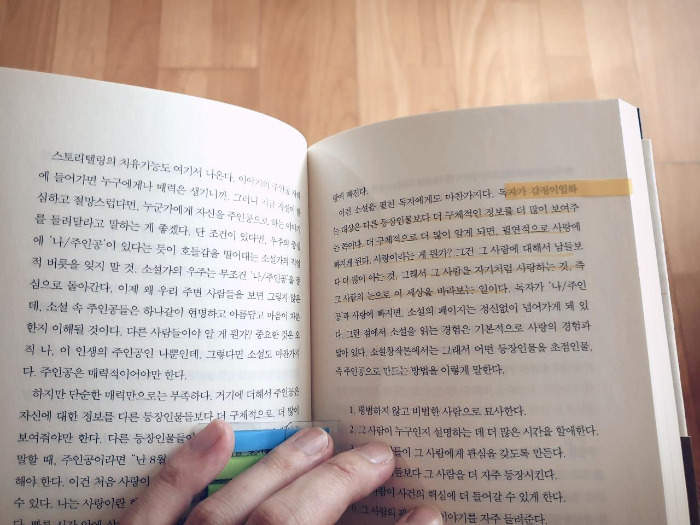 스토리텔링의 치유가능도 여기서 나온다. 이야기의 주인공 자리
에 들어가면 누구에게나 매력은 생기니까. 그러니 지금 자신이 한
심하고 절망스럽다면, 누군가에게 자신을 주인공으로 하는 이야기
를 들려달라고 말하는 게 좋겠다. 단 조건이 있다면, 우주의 중심
에 '나/주인공'이 있다는 듯이 호들갑을 떨어대는 소설가의 직업
적 버릇을 잊지 말 것. 소설가의 우주는 무조건 '나/주인공'을 중
심으로 돌아간다. 이제 왜 우리 주변 사람들을 보면 그렇지 않은
데, 소설 속 주인공들은 하나같이 현명하고 아름답고 마음이 따뜻
한지 이해될 것이다. 다른 사람들이야 알 게 뭔가? 중요한 것은 오
직 나, 이 인생의 주인공인 나뿐인데. 그렇다면 소설도 마찬가지
다. 주인공은 매력적이어야만 한다.
하지만 단순한 매력만으로는 부족하다. 거기에 더해서 주인공은
자신에 대한 정보를 다른 등장인물들보다 더 구체적으로, 더 많이
보여줘야만 한다. 다른 등장인물들이
말할 때, 주인공이라면 "난 8월
해야 한다. 이건 처음 사랑이
수 있다. 나는 사랑이란
다. 빠른 시간 안에
랑이 빠진다.
이건 소설을 펼친 독자에게도 마찬가지다. 독자가 감정이입하
는 대상은 다른 등장인물보다 더 구체적인 정보를 더 많이 보여주
는 쪽이다. 더 구체적으로 더 많이 알게 되면, 필연적으로 사랑에
빠지게 된다. 사랑이라는 게 뭔가? 그건 그 사람에 대해서 남들보
다 더 많이 아는 것, 그래서 그 사람을 자기처럼 사랑하는 것, 즉
그 사람의 눈으로 이 세상을 바라보는 일이다. 독자가 '나/주인
공'과 사랑에 빠지면, 소설의 페이지는 정신없이 넘어가게 돼 있
다. 그런 점에서 소설을 읽는 경험은 기본적으로 사랑의 경험과
닮아 있다. 소설창작론에서는 그래서 어떤 등장인물을 초점인물,
즉 주인공으로 만드는 방법을 이렇게 말한다.
1. 평범하지 않고 비범한 사람으로 묘사한다.
2. 그 사람이 누구인지 설명하는 데 더 많은 시간을 할애한다.
이 그 사람에게 관심을 갖도록 만든다.
들보다 그 사람을 더 자주 등장시킨다.
사람이 사건의 핵심에 더 들어갈 수 있게 한다.
6. 그 사람의 이야기를 자주 들려준다.